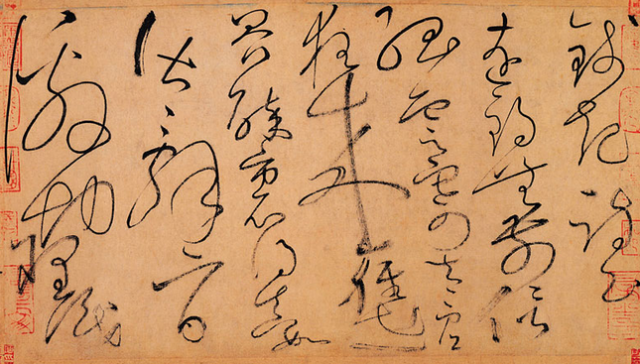 錢起詩云
遠錫無前侶
孤雲寄太虛
狂來輕世
界醉裏得真如
皆辭旨
激切理識